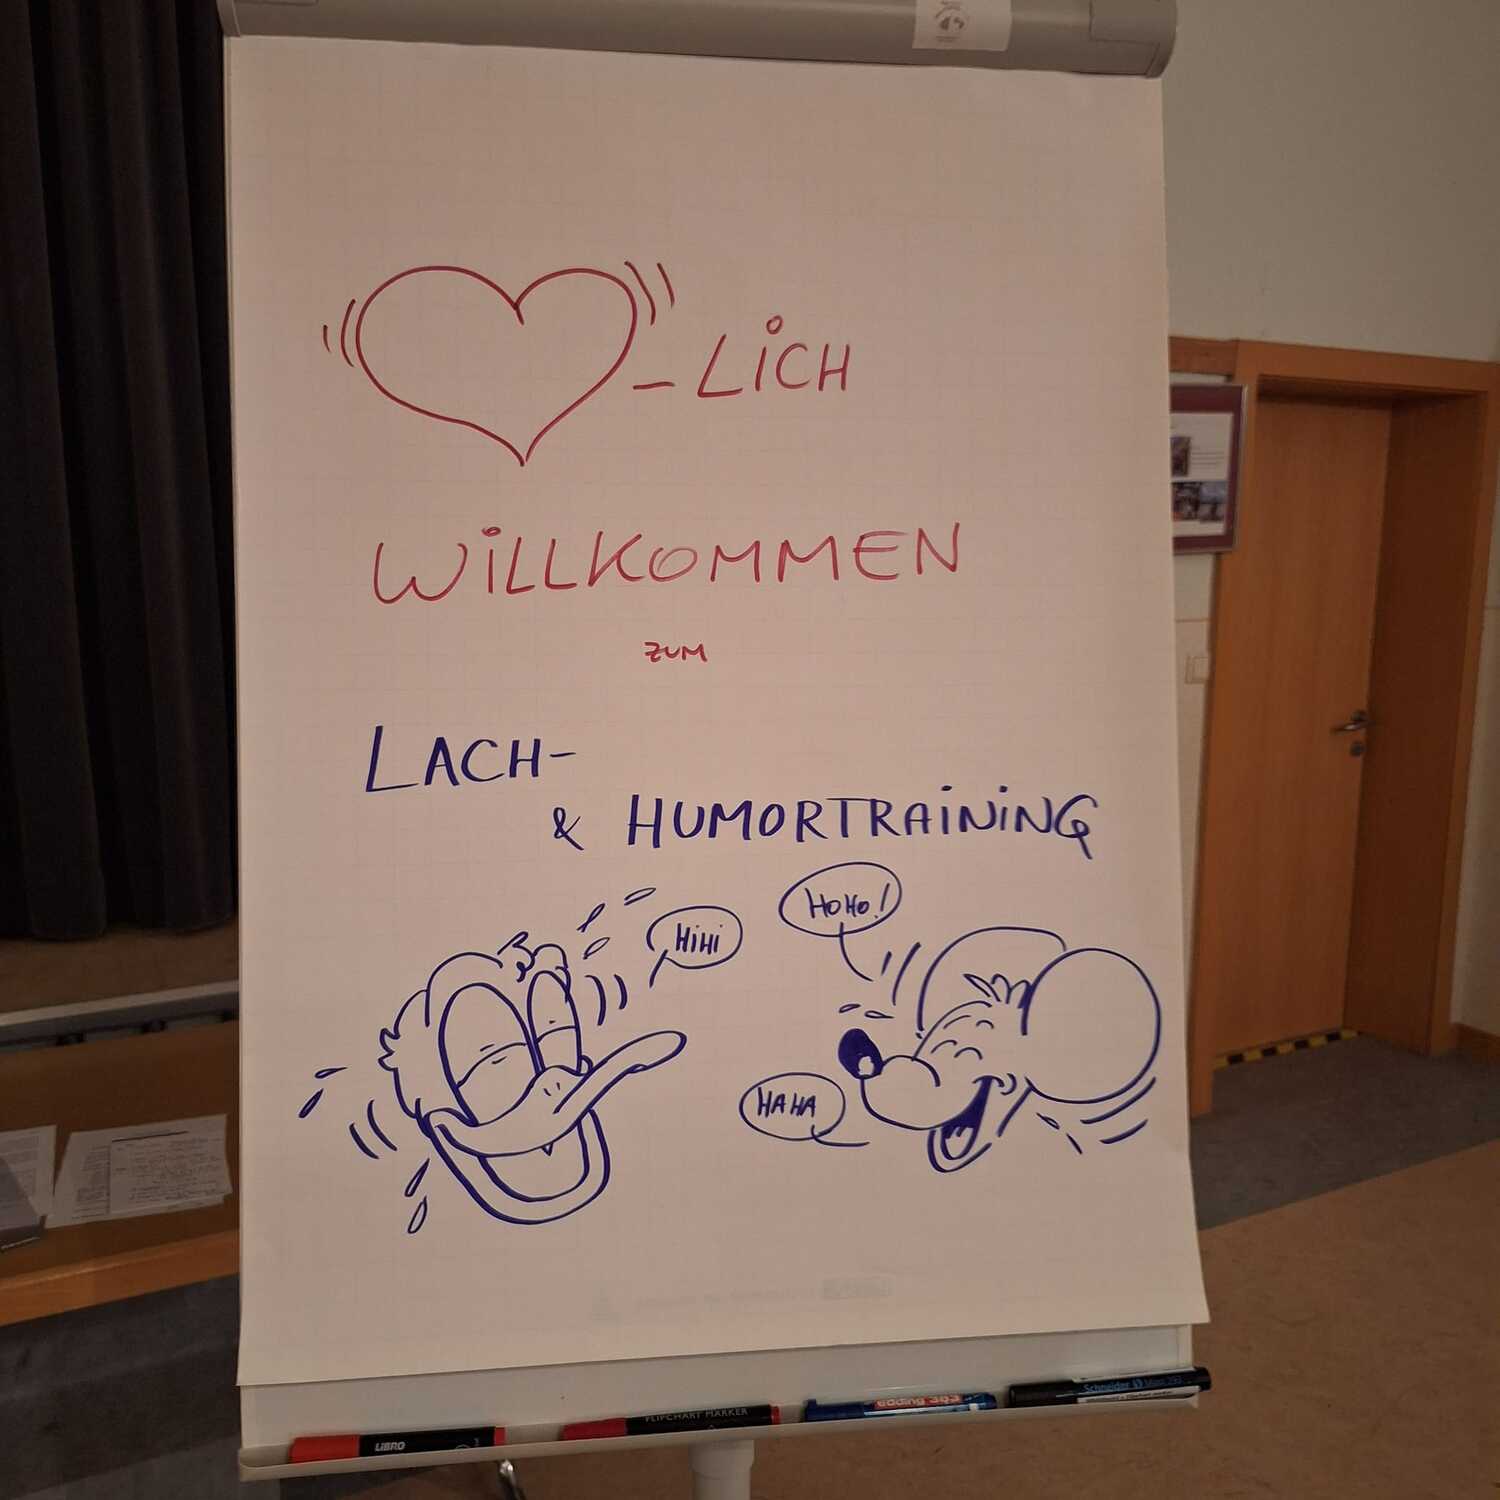 -LiCH
WiLLKOMMEN
ZUM
LACH-
& HUMORTRAiNiNG
HiHi
HoHo!
HAHA
LiBRO
FLIPCHART MARKER
edding 383
Schneider